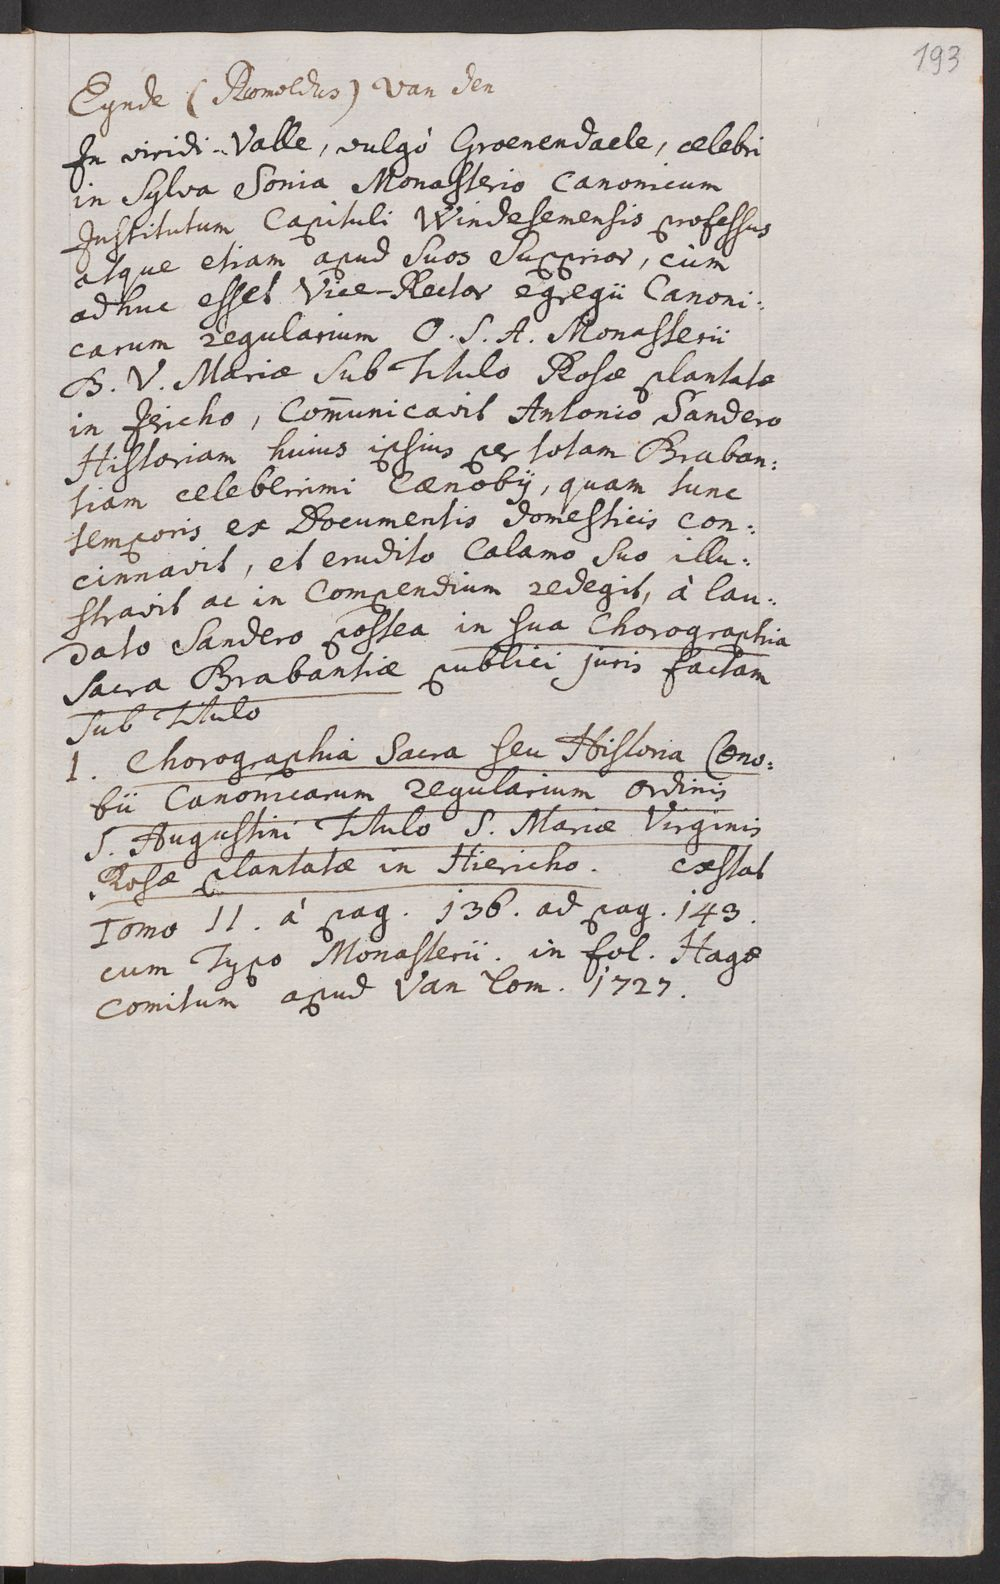 193
Eynde (Romoldus) van den
In viridi-Valle, vulgò Groenendaele, celebri
in Sylva Sonia Monasterio Canonicum
Institutum Capituli Windesemensis professus
atque etiam apud Suos Supprior, cùm
adhuc esset Vice-Rector egregii Canoni:
carum regularium O. S. A. Monasterii
B. V. Mariæ Sub titulo Rosæ plantatæ
in Jericho, Com̄unicavit Antonio Sandero
Historiam huius ipsius per totam Braban:
tiam celeberrimi Cænobÿ, quam tunc
temporis ex Documentis domesticis con:
cinnavit, et erudito Calamo Suo illu:
stravit ac in Compendium redegit, à lau:
dato Sandero postea in sua Chorographia
Sacra Brabantiæ publici juris factam
Sub titulo
1. Chorographia Sacra seu Historia Cœno:
bii Canonicarum regularium ordinis
S. Augustini titulo S. Mariæ Virginis
Rosæ plantatæ in Hiericho. exstat
Tomo II. à pag. 136. ad pag. 143.
cum Typo Monasterii. in fol. Hagæ
Comitum apud Van Lom. 1727.